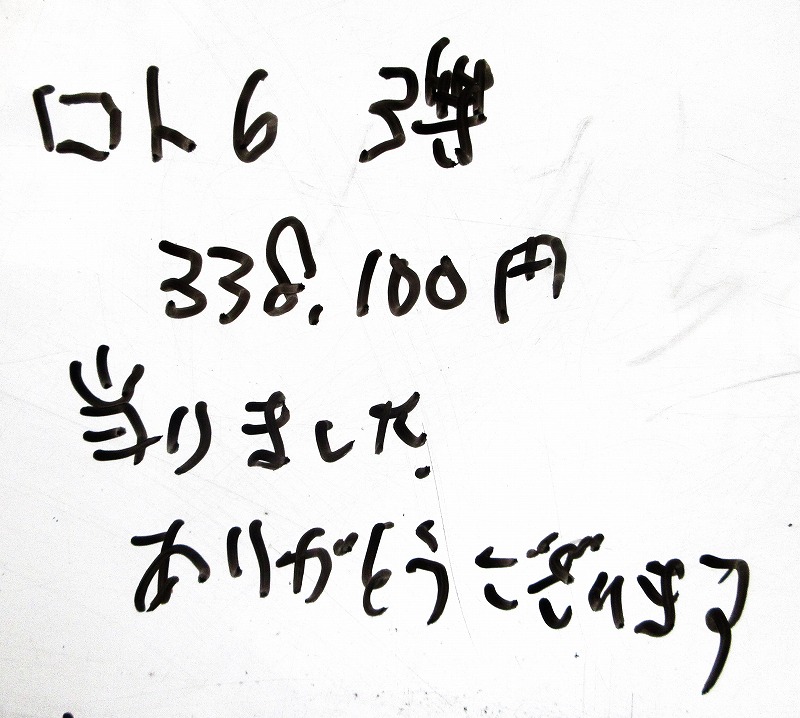 ロト6 3等
338,100円
当りました.
ありがとうございます